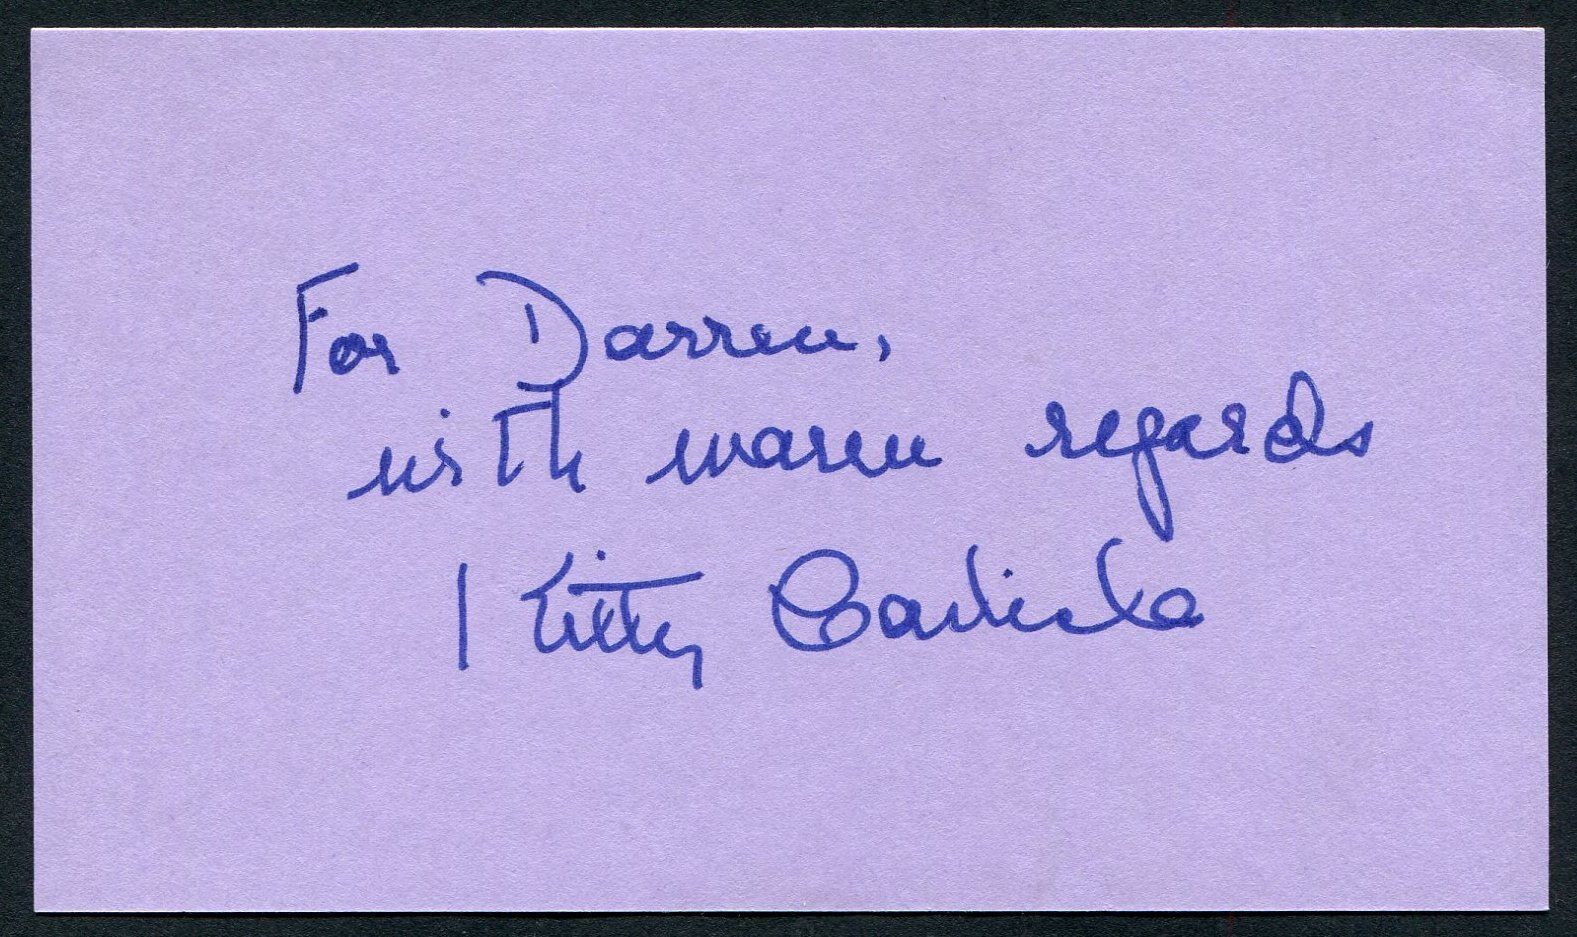 For Darren,
with warm regards
Kitty Carlisle